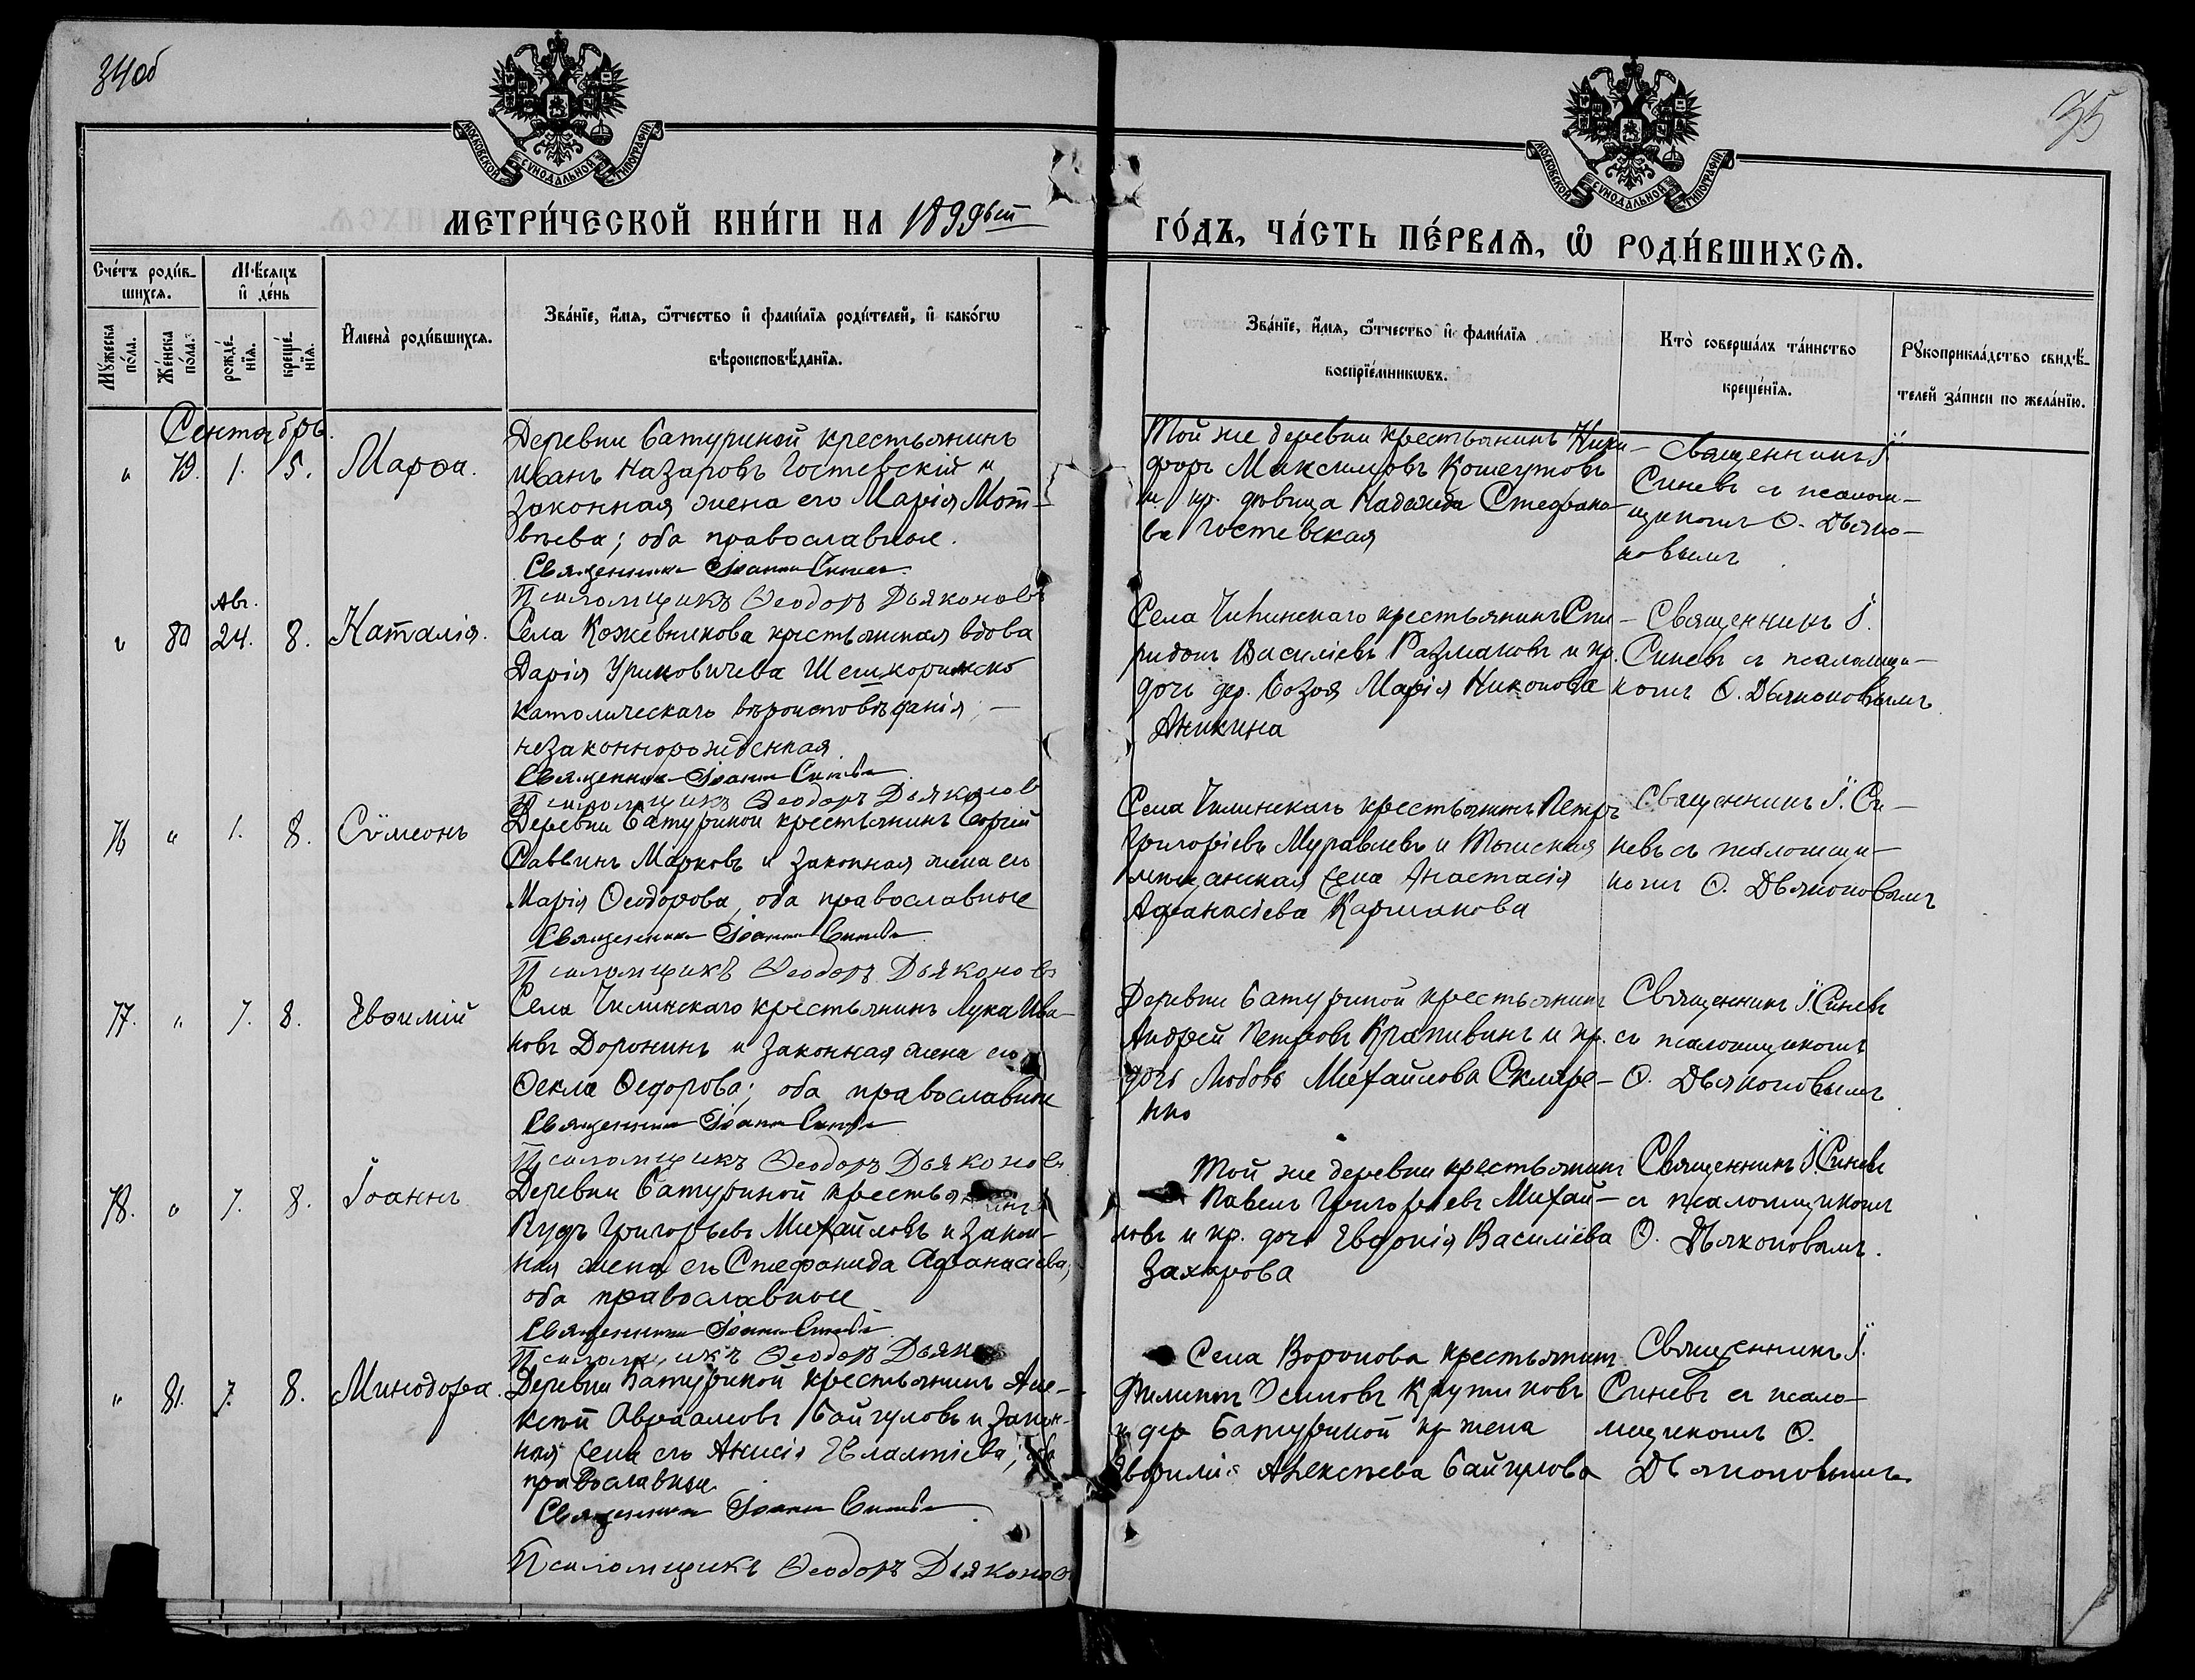 34об
35
МОСКОВСКОЙ СѴНОДАЛЬНОЙ ТИПОГРАФІИ
МОСКОВСКОЙ СѴНОДАЛЬНОЙ ТИПОГРАФІИ
МЕТРИ́ЧЕСКОЙ КНИ́ГИ НА 1899ый
ГО́ДЪ, ЧА́СТЬ ПЕ́РВАѦ, Ѡ РОДИ́ВШИХСѦ.
Сче́тъ роди́в-
шихсѧ.
Мѣ́сѧцъ
и де́нь
Мꙋ́жеска
по́ла.
Же́нска
по́ла.
рожде́-
нїѧ.
креще́-
нїѧ.
И҆мена̀ роди́вшихсѧ.
Зва́нїе, и҆́мѧ, ѻ҆́тчество и҆ фами́лїѧ роди́телей, и҆ како́гѡ
вѣроисповѣ́данїѧ.
Зва́нїе, и҆́мѧ, ѻ҆́тчество и҆ фами́лїѧ
воспрїе́мникѡвъ.
Кто̀ соверша́лъ та́инство
креще́нїѧ.
Рꙋкоприкла́дство свидѣ́-
телей за́писи по жела́нїю.
Сентябрь.
" 79. 1. 5. Марѳа.
Деревни Батуриной крестьянинъ
Иванъ Назаровъ Гостевскій и
законная жена его Марія Мат-
вѣева; оба православные.
Священникъ Іоаннъ Синевъ
Псаломщикъ Ѳеодоръ Дьяконовъ
Той же деревни крестьянинъ Ники-
форъ Максимовъ Кошегутовъ
и кр. дѣвица Надежда Стефано-
ва Гостевская
Священникъ І.
Синевъ съ псалом-
щикомъ Ѳ. Дьяко-
новымъ
" 80 Авг. 24. 8. Наталія.
Села Кожевникова крестьянская вдова
Дарія Уриковичева
католическаго вѣроисповѣданія; —
незаконнорожденная
Священникъ Іоаннъ Синевъ
Псаломщикъ Ѳеодоръ Дьяконовъ
Села Чилинскаго крестьянинъ Спи-
ридонъ Василіевъ Размановъ и кр.
дочь дер. Базоя Марія Никонова
Аникина
Священникъ І.
Синевъ съ псаломщи-
комъ Ѳ. Дьяконовымъ
76 " 1. 8. Сѵмеонъ
Деревни Батуриной крестьянинъ Сергій
Саввинъ Марковъ и законная жена его
Марія Ѳеодорова, оба православные
Священникъ Іоаннъ Синевъ
Псаломщикъ Ѳеодоръ Дьяконовъ
Села Чилинскаго крестьянинъ Петръ
Григоріевъ Муравлевъ и Томская
мѣщанская жена Анастасія
Афанасіева Карманова
Священникъ І. Си-
невъ съ псаломщи-
комъ Ѳ. Дьяконовымъ
77. " 7. 8. Евѳимій
Села Чилинскаго крестьянинъ Лука Ива-
новъ Доронинъ и законная жена его
Ѳекла Ѳедорова; оба православные
Священникъ Іоаннъ Синевъ
Псаломщикъ Ѳеодоръ Дьяконовъ
Деревни Батуриной крестьянинъ
Андрей Петровъ Крапивинъ и кр.
дочь Любовь Михайлова Скляре-
нко
Священникъ І. Синевъ
съ псаломщикомъ
Ѳ. Дьяконовымъ
78. " 7. 8. Іоаннъ
Деревни Батуриной крестьянинъ
Кудръ Григорьевъ Михайловъ и закон-
ная жена его Стефанида Афанасіева,
оба православные
Священникъ Іоаннъ Синевъ
Псаломщикъ Ѳеодоръ Дьяк
Той же деревни крестьянинъ
Павелъ Григорьевъ Михай-
ловъ и кр. дочь Евфронія Василіева
Захарова
Священникъ І. Синевъ
съ псаломщикомъ
Ѳ. Дьяконовымъ.
" 81. 7. 8. Минодора.
Деревни Батуриной крестьянинъ Але-
ксѣй Авраамовъ Байгуловъ и закон-
ная жена его Анисія Евлампіева; оба
православные
Священникъ Іоаннъ Синевъ
Псаломщикъ Ѳеодоръ Дьяконовъ
Села Воронова крестьянинъ
Филиппъ Осиповъ Крутиковъ
и дер. Батуриной кр жена
Евфимія Алексѣева Байгулова
Священникъ І.
Синевъ съ псало-
мщикомъ Ѳ.
Дьяконовымъ.